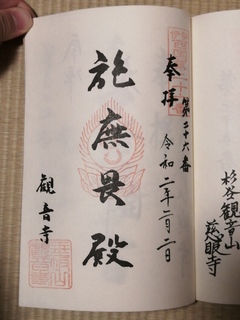 奉拝
第二十六番
令和二年二月二日
施無畏殿
観音寺
杉谷観音山
慈眼寺